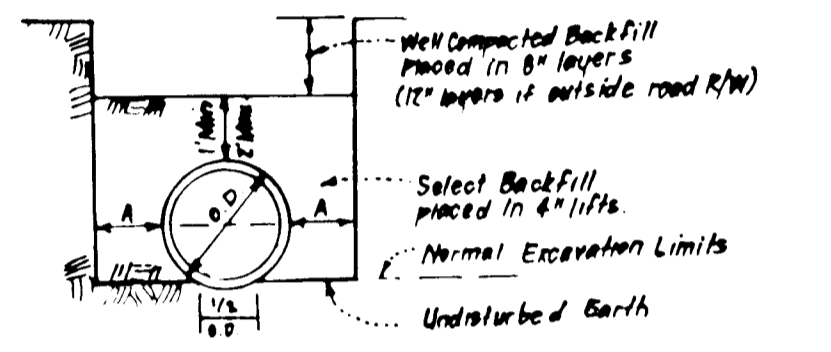 Well Compacted Backfill
placed in 8" layers
(12" layers if outside road R/W)
1' Min
2' Max
A
O.D
A
Select Backfill
placed in 4" lifts.
Normal Excavation Limits
Undisturbed Earth
1/2
O.D